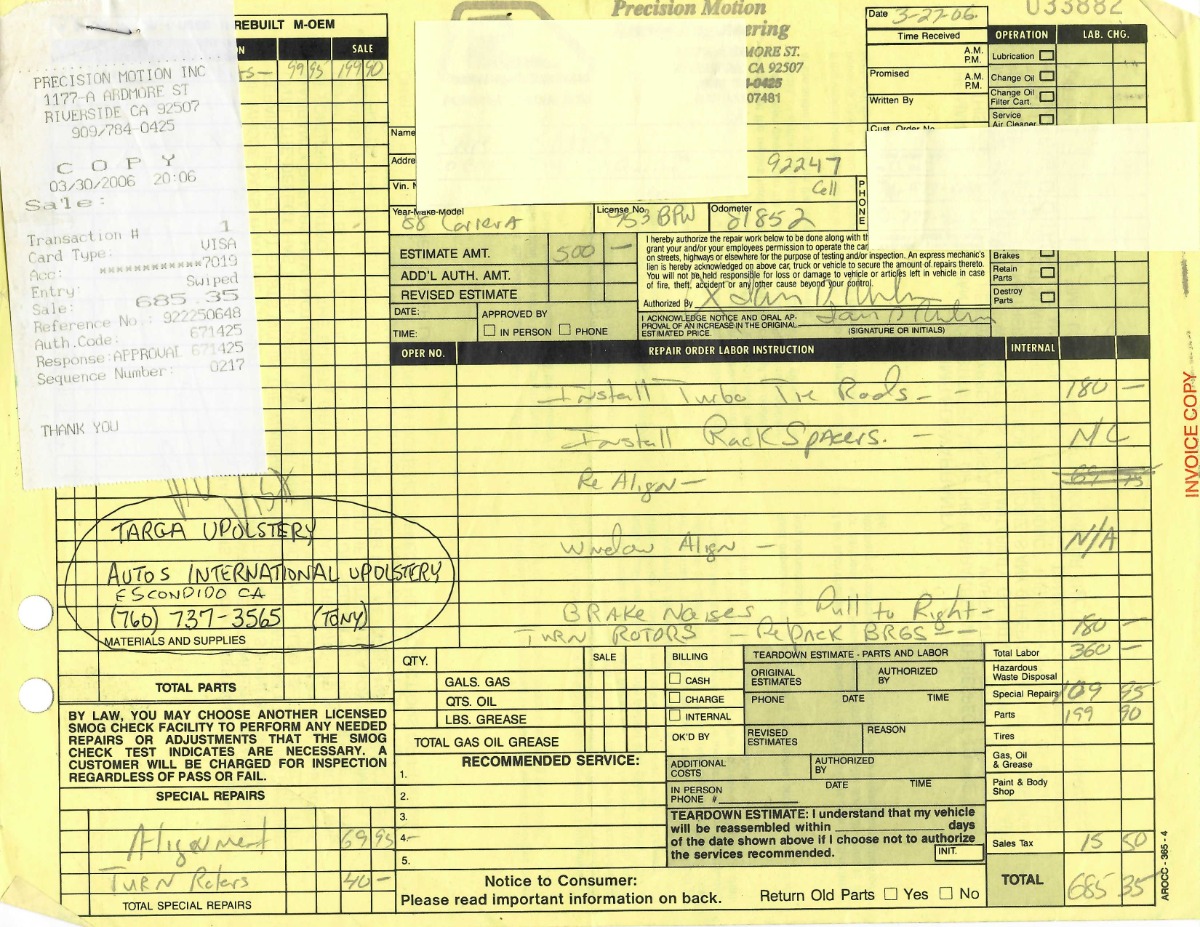 REBUILT M-OEM
SALE
99 95 199 90
PRECISION MOTION INC
1177-A ARDMORE ST
RIVERSIDE CA 92507
909/784-0425
COPY
03/30/2006 20:06
Sale:
Transaction # 1
Card Type: VISA
Acc: ************7019
Entry: Swiped
Sale: 685.35
Reference No.: 922250648
Auth.Code: 671425
Response:APPROVAL 671425
Sequence Number: 0217
THANK YOU
Precision Motion
MORE ST.
CA 92507
-0425
07481
Date 3-27-06
033882
Time Received
A.M.
P.M.
Promised
A.M.
P.M.
Written By
Cust. Order No
OPERATION LAB. CHG.
Lubrication
Change Oil
Change Oil
Filter Cart.
Service
Air Cleaner
Name
Addre
92247
Cell
PHONE
Year-Make-Model 88 CarrerA
License No. 953 BPW
Odometer 81852
ESTIMATE AMT. 500 —
ADD'L AUTH. AMT.
REVISED ESTIMATE
DATE:
TIME:
APPROVED BY
IN PERSON PHONE
I hereby authorize the repair work below to be done along with th
grant your and/or your employees permission to operate the car
on streets, highways or elsewhere for the purpose of testing and/or inspection. An express mechanic's
lien is hereby acknowledged on above car, truck or vehicle to secure the amount of repairs thereto.
You will not be held responsible for loss or damage to vehicle or articles left in vehicle in case
of fire, theft, accident or any other cause beyond your control.
Authorized By X
I ACKNOWLEDGE NOTICE AND ORAL AP-
PROVAL OF AN INCREASE IN THE ORIGINAL
ESTIMATED PRICE.
(SIGNATURE OR INITIALS)
Brakes
Retain
Parts
Destroy
Parts
OPER NO. REPAIR ORDER LABOR INSTRUCTION INTERNAL
Install Turbo Tie Rods — 180 —
Install Rack Spacers. — N/C
Re Align — 69 95
Window Align — N/A
BRAKE Noises Pull to Right —
TURN ROTORS — RePack BRGS — 180 —
TARGA UPOLSTERY
AUTOS INTERNATIONAL UPOLSTERY
ESCONDIDO CA
(760) 737-3565 (TONY)
MATERIALS AND SUPPLIES
TOTAL PARTS
BY LAW, YOU MAY CHOOSE ANOTHER LICENSED
SMOG CHECK FACILITY TO PERFORM ANY NEEDED
REPAIRS OR ADJUSTMENTS THAT THE SMOG
CHECK TEST INDICATES ARE NECESSARY. A
CUSTOMER WILL BE CHARGED FOR INSPECTION
REGARDLESS OF PASS OR FAIL.
SPECIAL REPAIRS
Alignment 69 95
TURN Roters 40 —
TOTAL SPECIAL REPAIRS
QTY. SALE
GALS. GAS
QTS. OIL
LBS. GREASE
TOTAL GAS OIL GREASE
RECOMMENDED SERVICE:
1.
2.
3.
4.
5.
BILLING
CASH
CHARGE
INTERNAL
OK'D BY
TEARDOWN ESTIMATE - PARTS AND LABOR
ORIGINAL
ESTIMATES
AUTHORIZED
BY
PHONE DATE TIME
REVISED
ESTIMATES
REASON
ADDITIONAL
COSTS
AUTHORIZED
BY
IN PERSON
PHONE #
DATE TIME
TEARDOWN ESTIMATE: I understand that my vehicle
will be reassembled within ________ days
of the date shown above if I choose not to authorize
the services recommended.
INIT.
Notice to Consumer:
Please read important information on back.
Return Old Parts Yes No
Total Labor 360 —
Hazardous
Waste Disposal
Special Repairs 109 95
Parts 199 90
Tires
Gas, Oil
& Grease
Paint & Body
Shop
Sales Tax 15 50
TOTAL 685 35
INVOICE COPY
AROCC - 365 - 4